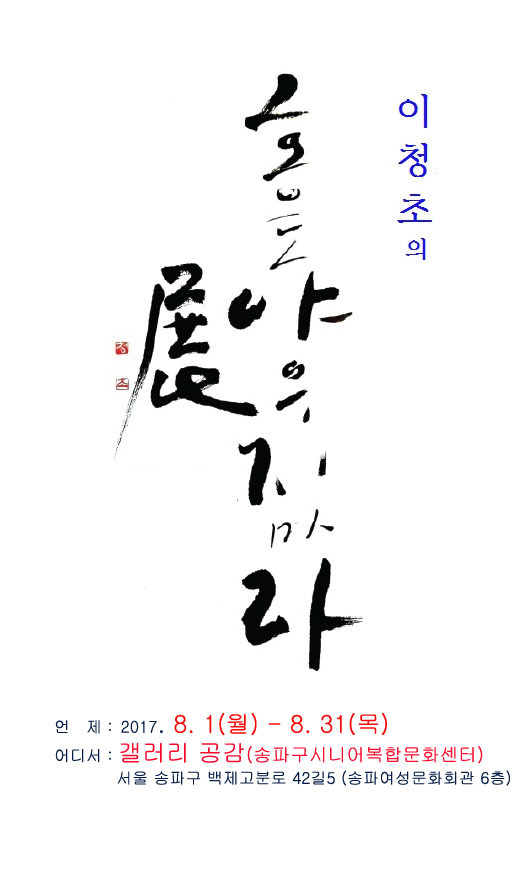 이청초의
홍도야 우지마라
展
언 제 : 2017. 8. 1(월) - 8. 31(목)
어디서 : 갤러리 공감(송파구시니어복합문화센터)
서울 송파구 백제고분로 42길5 (송파여성문화회관 6층)